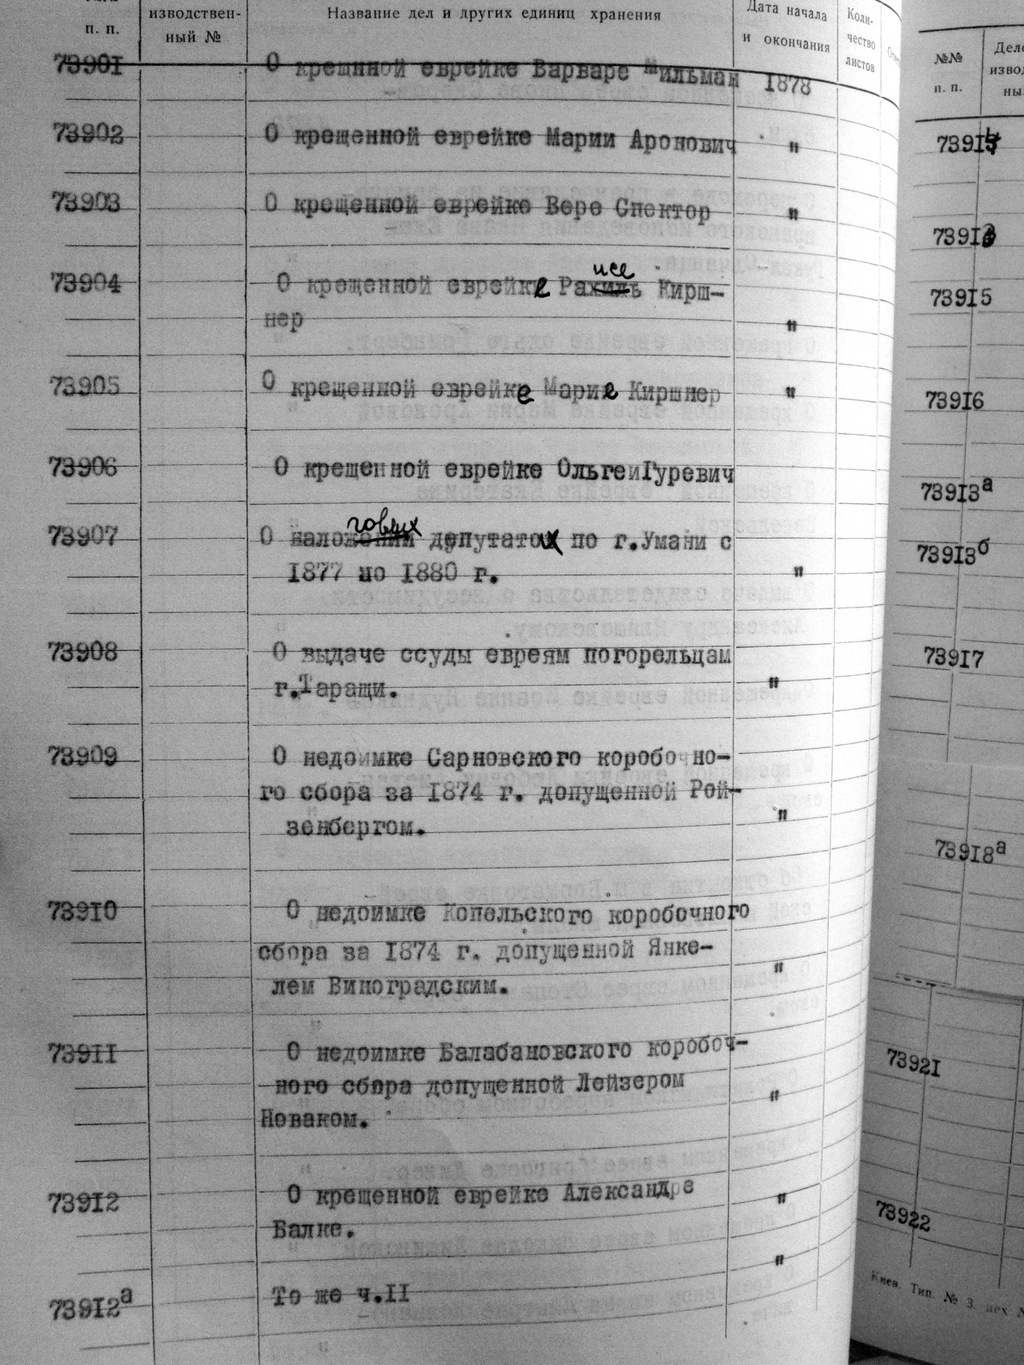 п. п.
изводствен-
ный №
Название дел и других единиц хранения
Дата начала
и окончания
Коли-
чество
листов
73901 О крещнной еврейке Варваре Мильман 1878
73902 О крещенной еврейке Марии Аронович "
73903 О крещенной еврейке Вере Спектор "
73904 О крещенной еврейке Рахисе Кирш-
нер "
73905 О крещенной еврейке Марие Киршнер "
73906 О крещенной еврейке Ольге Гуревич
73907 О налоговых депутатах по г.Умани с
1877 по 1880 г. "
73908 О выдаче ссуды евреям погорельцам
г.Таращи. "
73909 О недоимке Сарновского коробочно-
го сбора за 1874 г. допущенной Рой-
зенбергом. "
73910 О недоимке Копельского коробочного
сбора за 1874 г. допущенной Янке-
лем Виноградским. "
73911 О недоимке Балабановского коробоч-
ного сбора допущенной Лейзером
Новаком. "
73912 О крещенной еврейке Александре
Балке. "
73912а То же ч.II "
№№
п. п.
Дело
извод
ны
73915
73916
73913а
73913б
73917
73918а
73921
73922
Киев. Тип. № 3. цех №